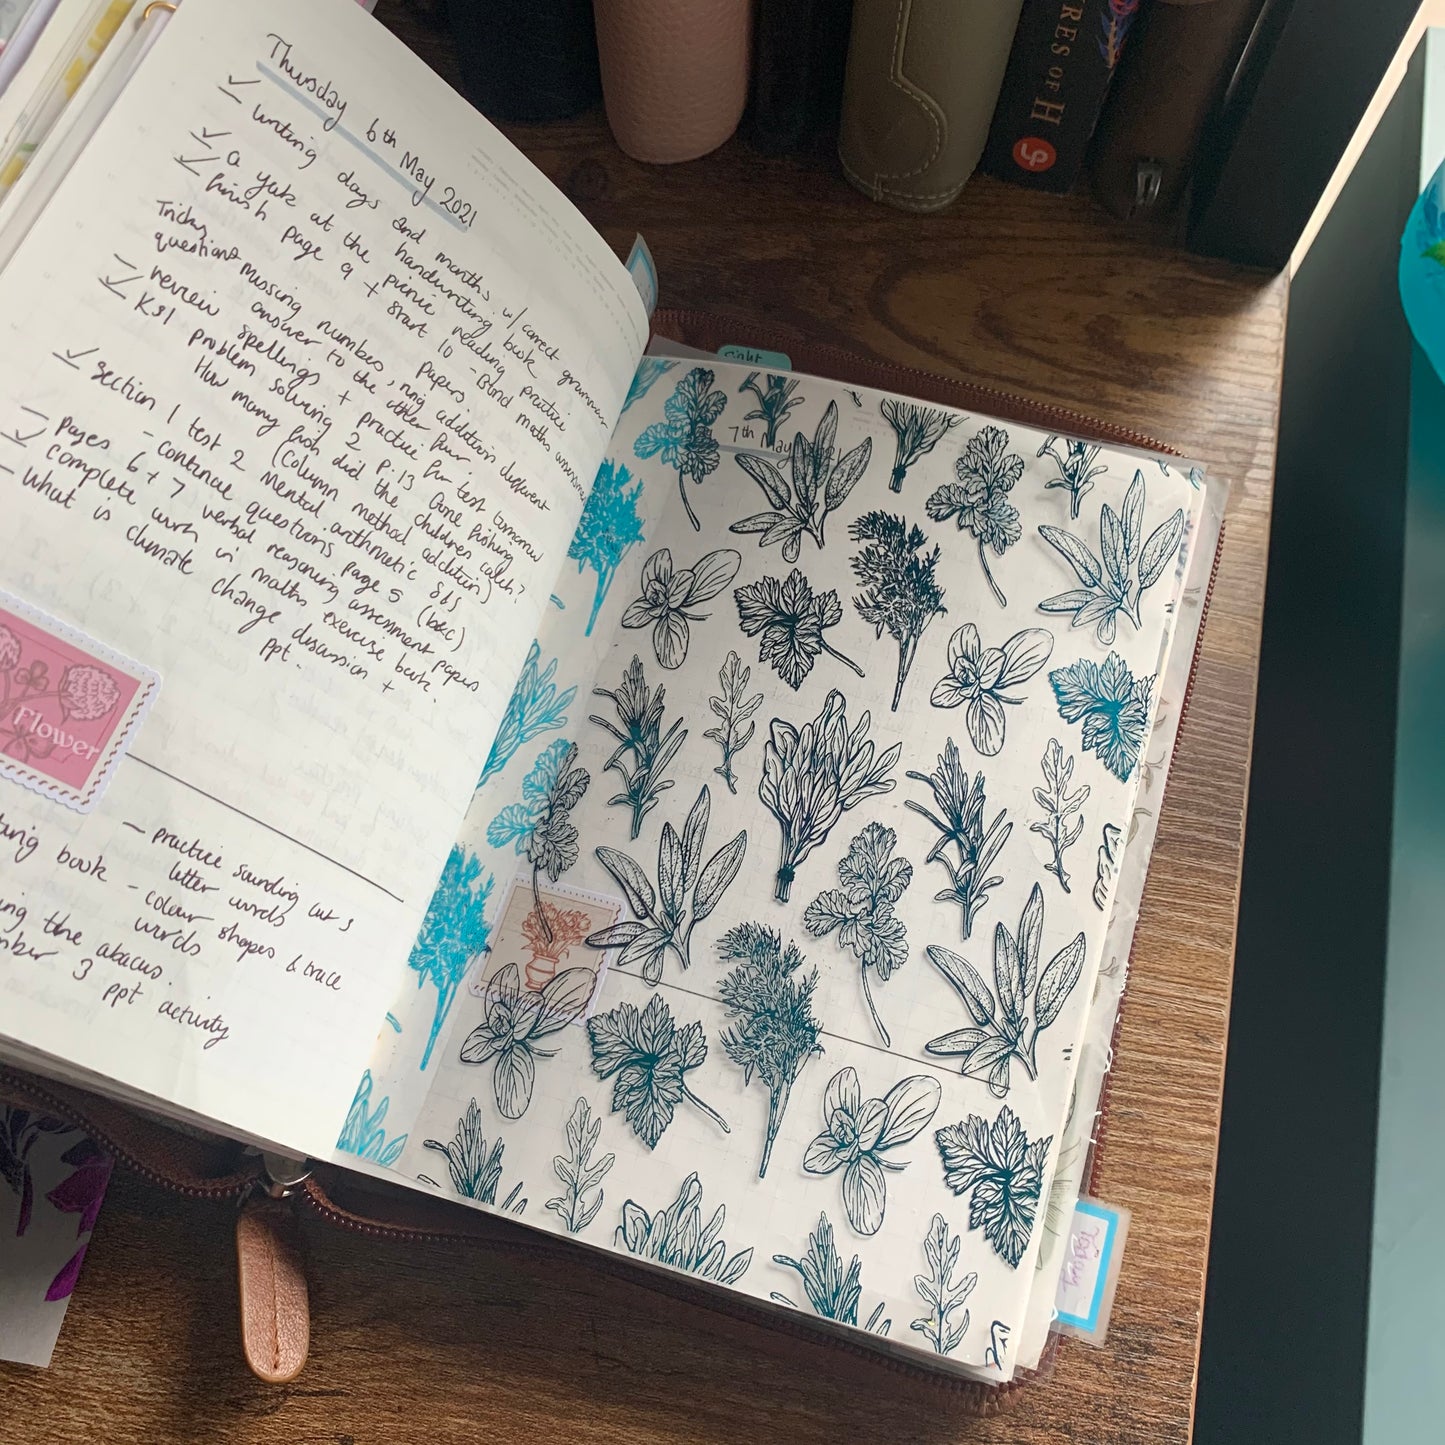 Thursday 6th May 2021
writing days and months w/ correct grammar
a yak at the picnic reading practice
handwriting book
finish page 9 + start 10 - Bond maths
Tricky missing numbers, ning addition different
questions answer to the other
papers
review spellings + practice for test tomorrow
KS1 problem solving 2 P.13 Gone fishing
How many fish did the children catch?
(column method addition)
section 1 test 2 Mental arithmetic
- continue questions page 5 (b&c)
pages 6 + 7 verbal reasoning assessment papers
complete work in maths exercise book
What is climate change discussion +
ppt.
Flower
book
- practice sounding out 3
letter words
- colour shapes & trace
words
the abacus
3 ppt activity
7th May
Today
RES OF H